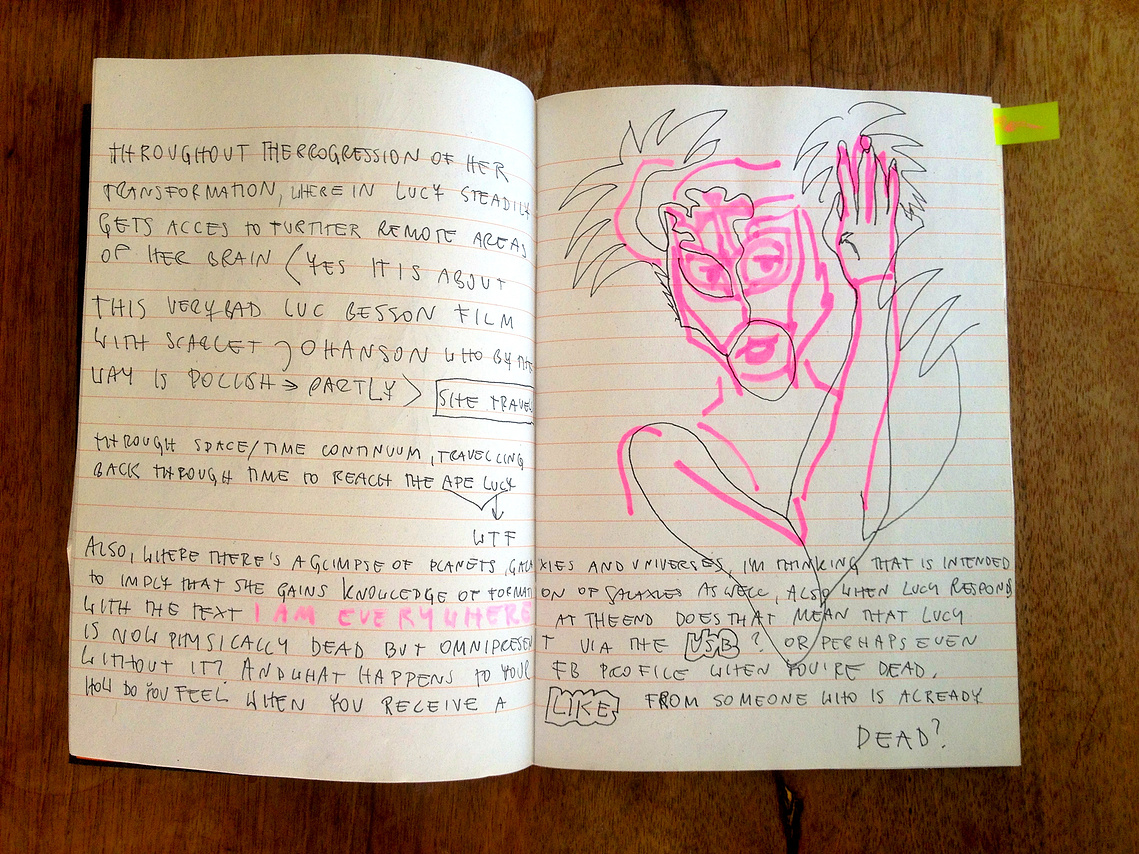 THROUGHOUT THE PROGRESSION OF HER
TRANSFORMATION, WHERE IN LUCY STEADILY
GETS ACCES TO FURTHER REMOTE AREAS
OF HER BRAIN (YES IT IS ABOUT
THIS VERY BAD LUC BESSON FILM
WITH SCARLET JOHANSON WHO BY THE
WAY IS POLISH → PARTLY)
SHE TRAVEL
THROUGH SPACE/TIME CONTINUUM, TRAVELLING
BACK THROUGH TIME TO REACH THE APE LUCY
WTF
ALSO, WHERE THERE'S A GLIMPSE OF PLANETS, GALAXIES AND UNIVERSES, I'M THINKING THAT IS INTENDED
TO IMPLY THAT SHE GAINS KNOWLEDGE OF FORMATION OF GALAXIES AS WELL, ALSO WHEN LUCY RESPONDS
WITH THE TEXT I AM EVERYWHERE AT THE END DOES THAT MEAN THAT LUCY
IS NOW PHYSICALLY DEAD BUT OMNIPRESENT VIA THE USB? OR PERHAPS EVEN
WITHOUT IT? AND WHAT HAPPENS TO YOUR FB PROFILE WHEN YOU'RE DEAD.
HOW DO YOU FEEL WHEN YOU RECEIVE A LIKE FROM SOMEONE WHO IS ALREADY
DEAD?